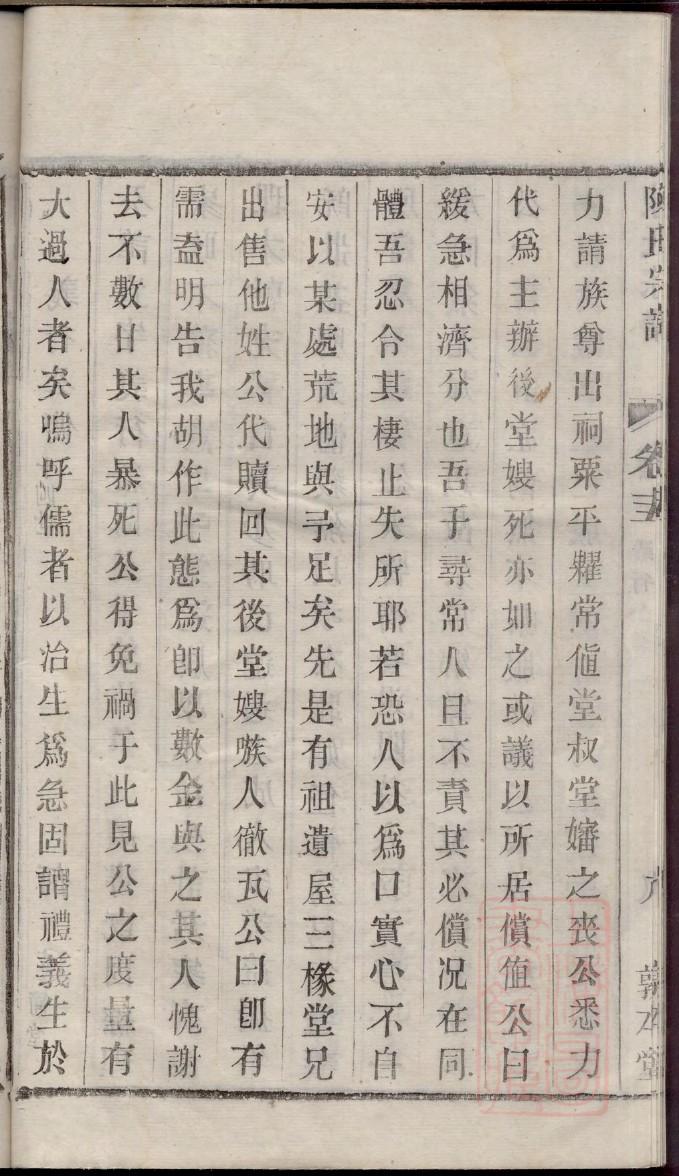 陳氏宗譜 卷三 敦本堂
力請族尊出祠粟平糶常値堂叔堂嬸之喪公悉力
代爲主辦後堂嫂死亦如之或議以所居償值公曰
緩急相濟分也吾于尋常人且不責其必償况在同
體吾忍令其棲止失所耶若恐人以爲口實心不自
安以某處荒地與予足矣先是有祖遺屋三椽堂兄
出售他姓公代贖回其後堂嫂嗾人徹瓦公曰卽有
需盍明告我胡作此態爲卽以數金與之其人愧謝
去不數日其人暴死公得免禍于此見公之度量有
大過人者矣嗚呼儒者以治生爲急固謂禮義生於